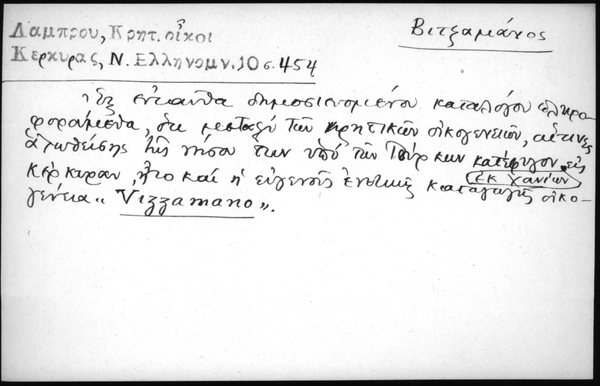 Λαμπρου, Κρητ. οἶκοι
Κερκυρας, Ν. Ελληνομν. 10 σ. 454
Βιτζαμάνος
Ἐξ ἐνταῦθα δημοσιευομένου καταλόγου πληρο-
φορούμεθα, ὅτι μεταξύ τῶν κρητικῶν οἰκογενειῶν, αἵτινες
ἁλωθείσης τῆς νήσου των ὑπό τῶν Τούρκων κατέφυγον εἰς
Κέρκυραν, ἦτο καί ἡ εὐγενοῦς ἐκ Χανίων καταγωγῆς οἰκο-
γένεια « Vizzamano ».